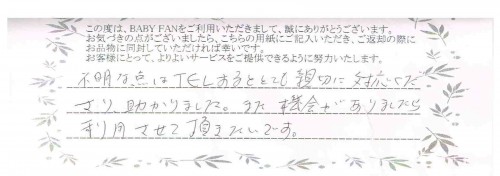 この度は、BABY FANをご利用いただきまして、誠にありがとうございます。
お気づきの点がございましたら、こちらの用紙にご記入いただき、ご返却の際に
お品物に同封していただければ幸いです。
お客様にとって、よりよいサービスをご提供できるように努力いたします。
不明な点はTELするととても親切に対応くだ
さり、助かりました。また機会がありましたら
利用させて頂きたいです。